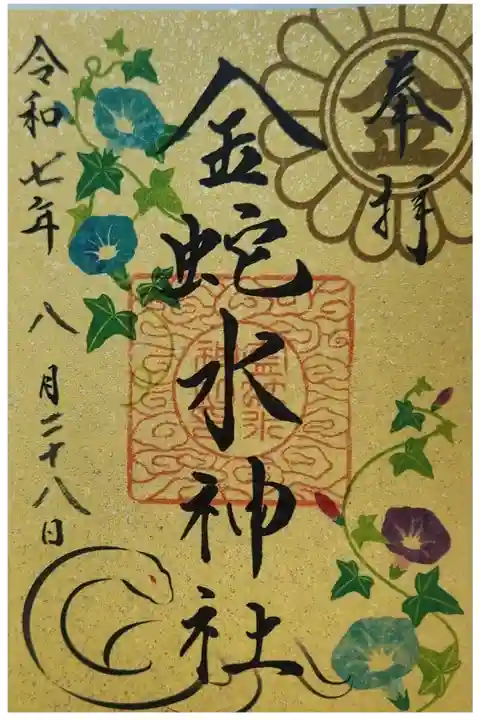 奉拝
金
金蛇水神社
令和七年
八月二十八日